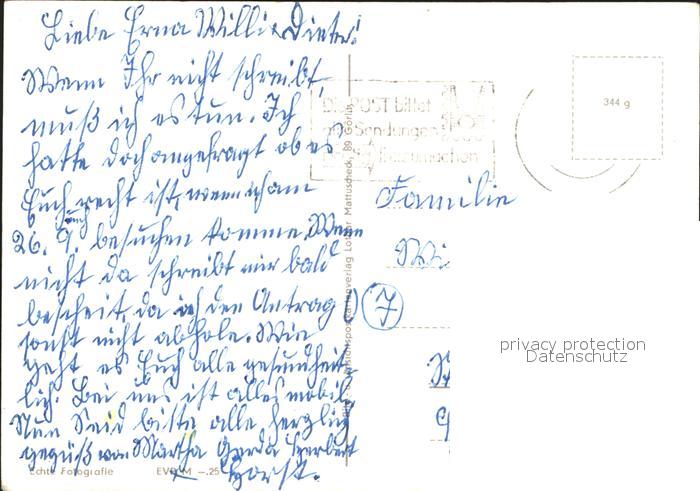 Liebe Erna Willi u Dieter!
Wenn Ihr nicht schreibt,
muß ich es tun. Ich
hatte doch angefragt ob es
Euch recht ist, wenn ich am
26. 9. Euch besuchen komme. Wenn
nicht da schreibt mir bald
bescheit, da ich den Antrag
sonst nicht abhole. Wie
geht es Euch alle gesundheit-
lich. Bei uns ist alles mobil.
Nun Seid bitte alle herzlich
gegrüß von Martha Gerda Herbert
Horst.
Echte Fotografie EVP M -.25
Lothar Mattuscheck, 89 Görlitz
Die POST bittet
Sendungen
344 g
Familie
Wi
privacy protection
Datenschutz